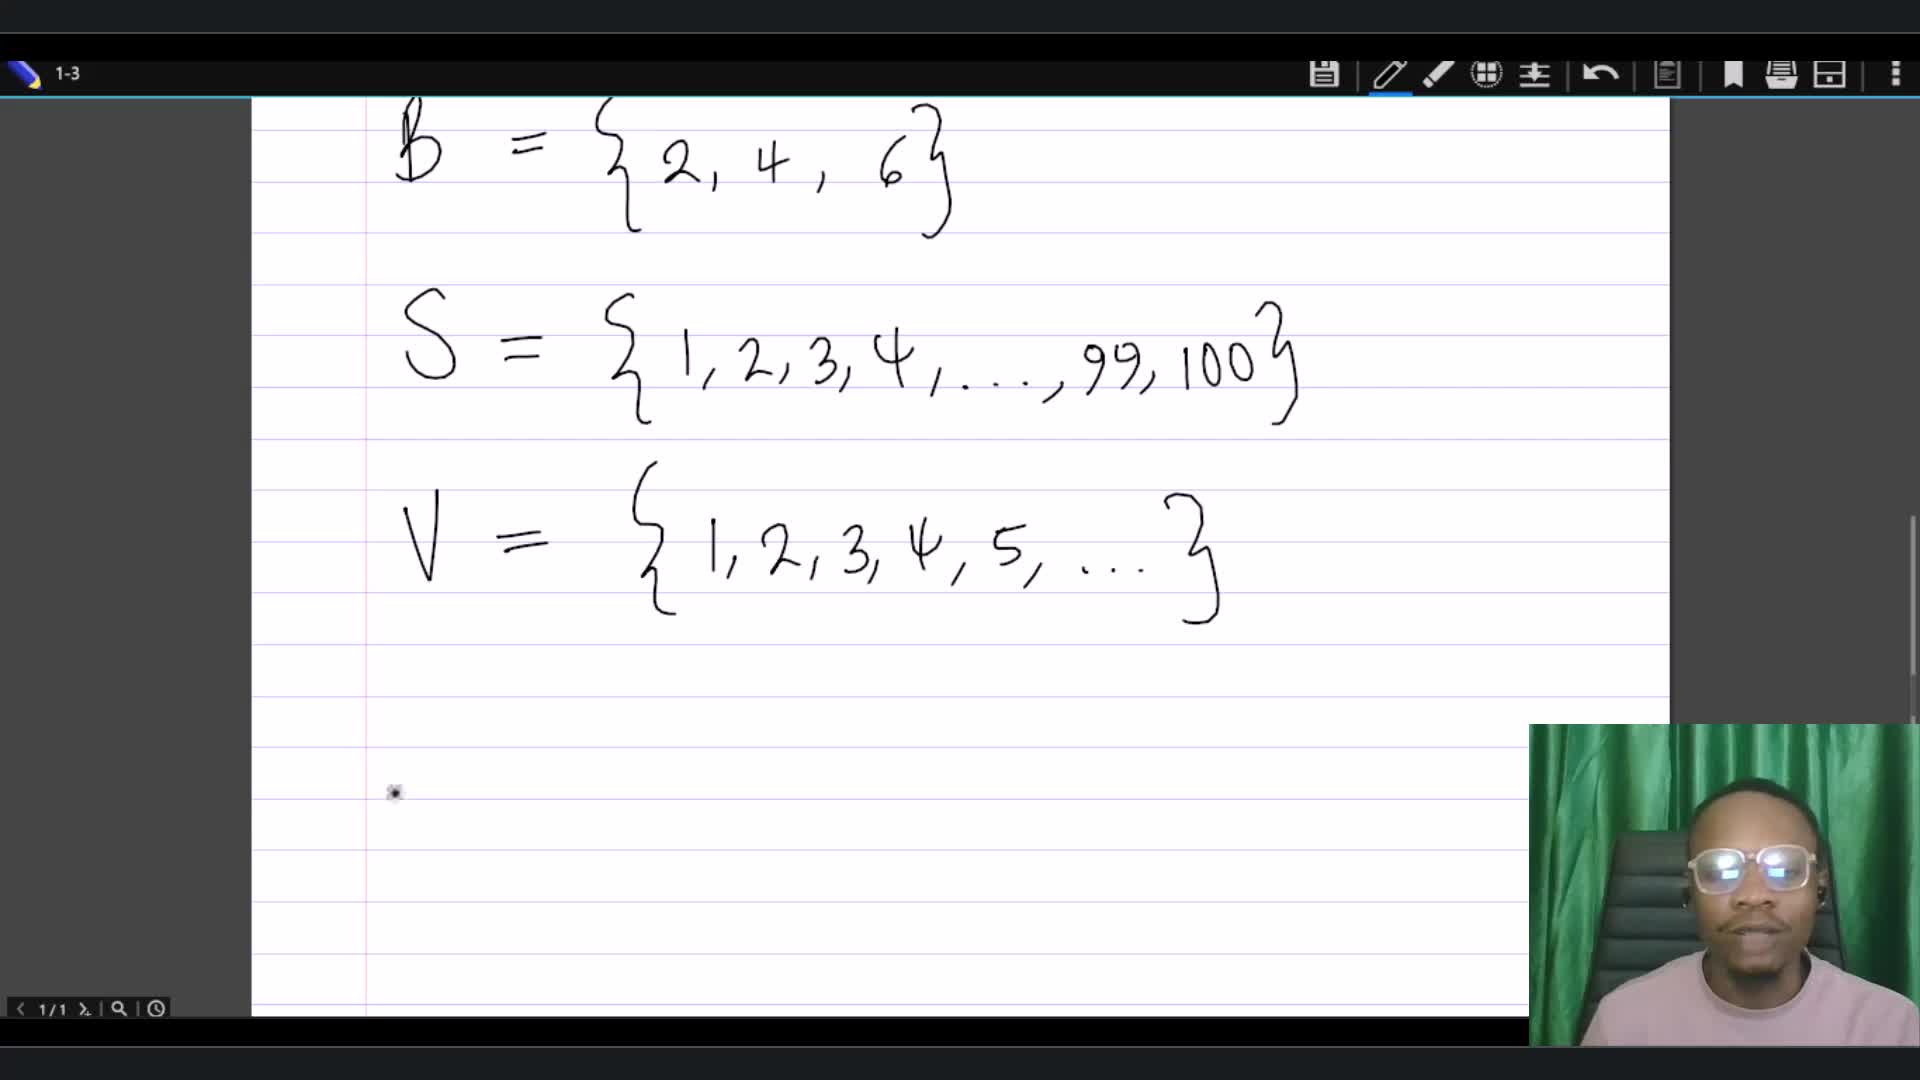 1-3
B = {2, 4, 6}
S = {1, 2, 3, 4, ..., 99, 100}
V = {1, 2, 3, 4, 5, ...}
1/1